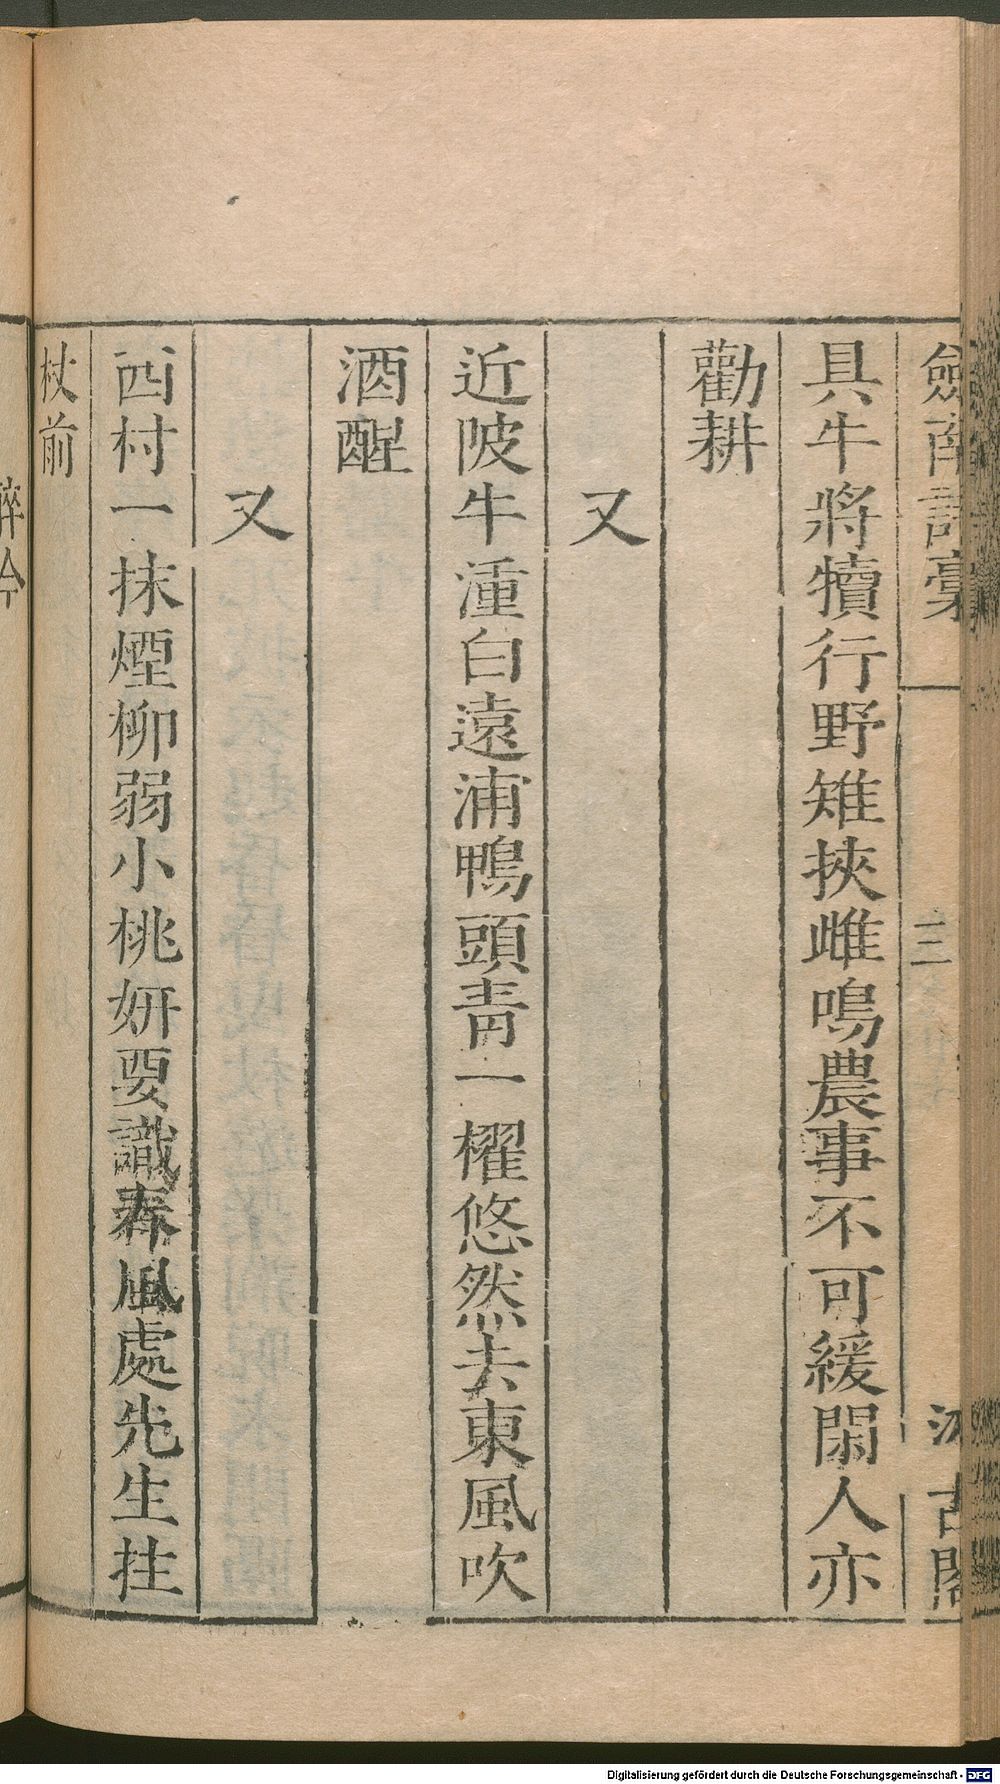 劒南詩稾
三
汲古閣
具牛將犢行野雉挾雌鳴農事不可緩閑人亦
勸耕
又
近陂牛湩白遠浦鴨頭青一櫂悠然去東風吹
酒醒
又
西村一抹煙柳弱小桃妍要識春風處先生拄
杖前
Digitalisierung gefördert durch die Deutsche Forschungsgemeinschaft - DFG